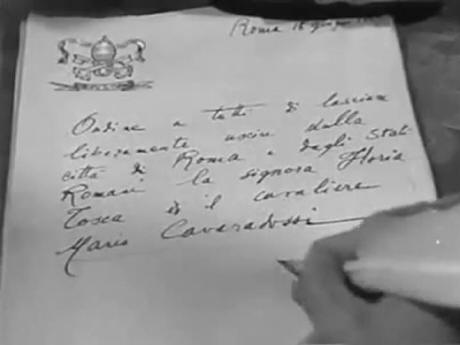 Roma 18 giugno
Ordine a tutti di lasciare
liberamente uscire dalla
città di Roma e dagli Stati
Romani la signora Floria
Tosca e il cavaliere
Mario Cavaradossi